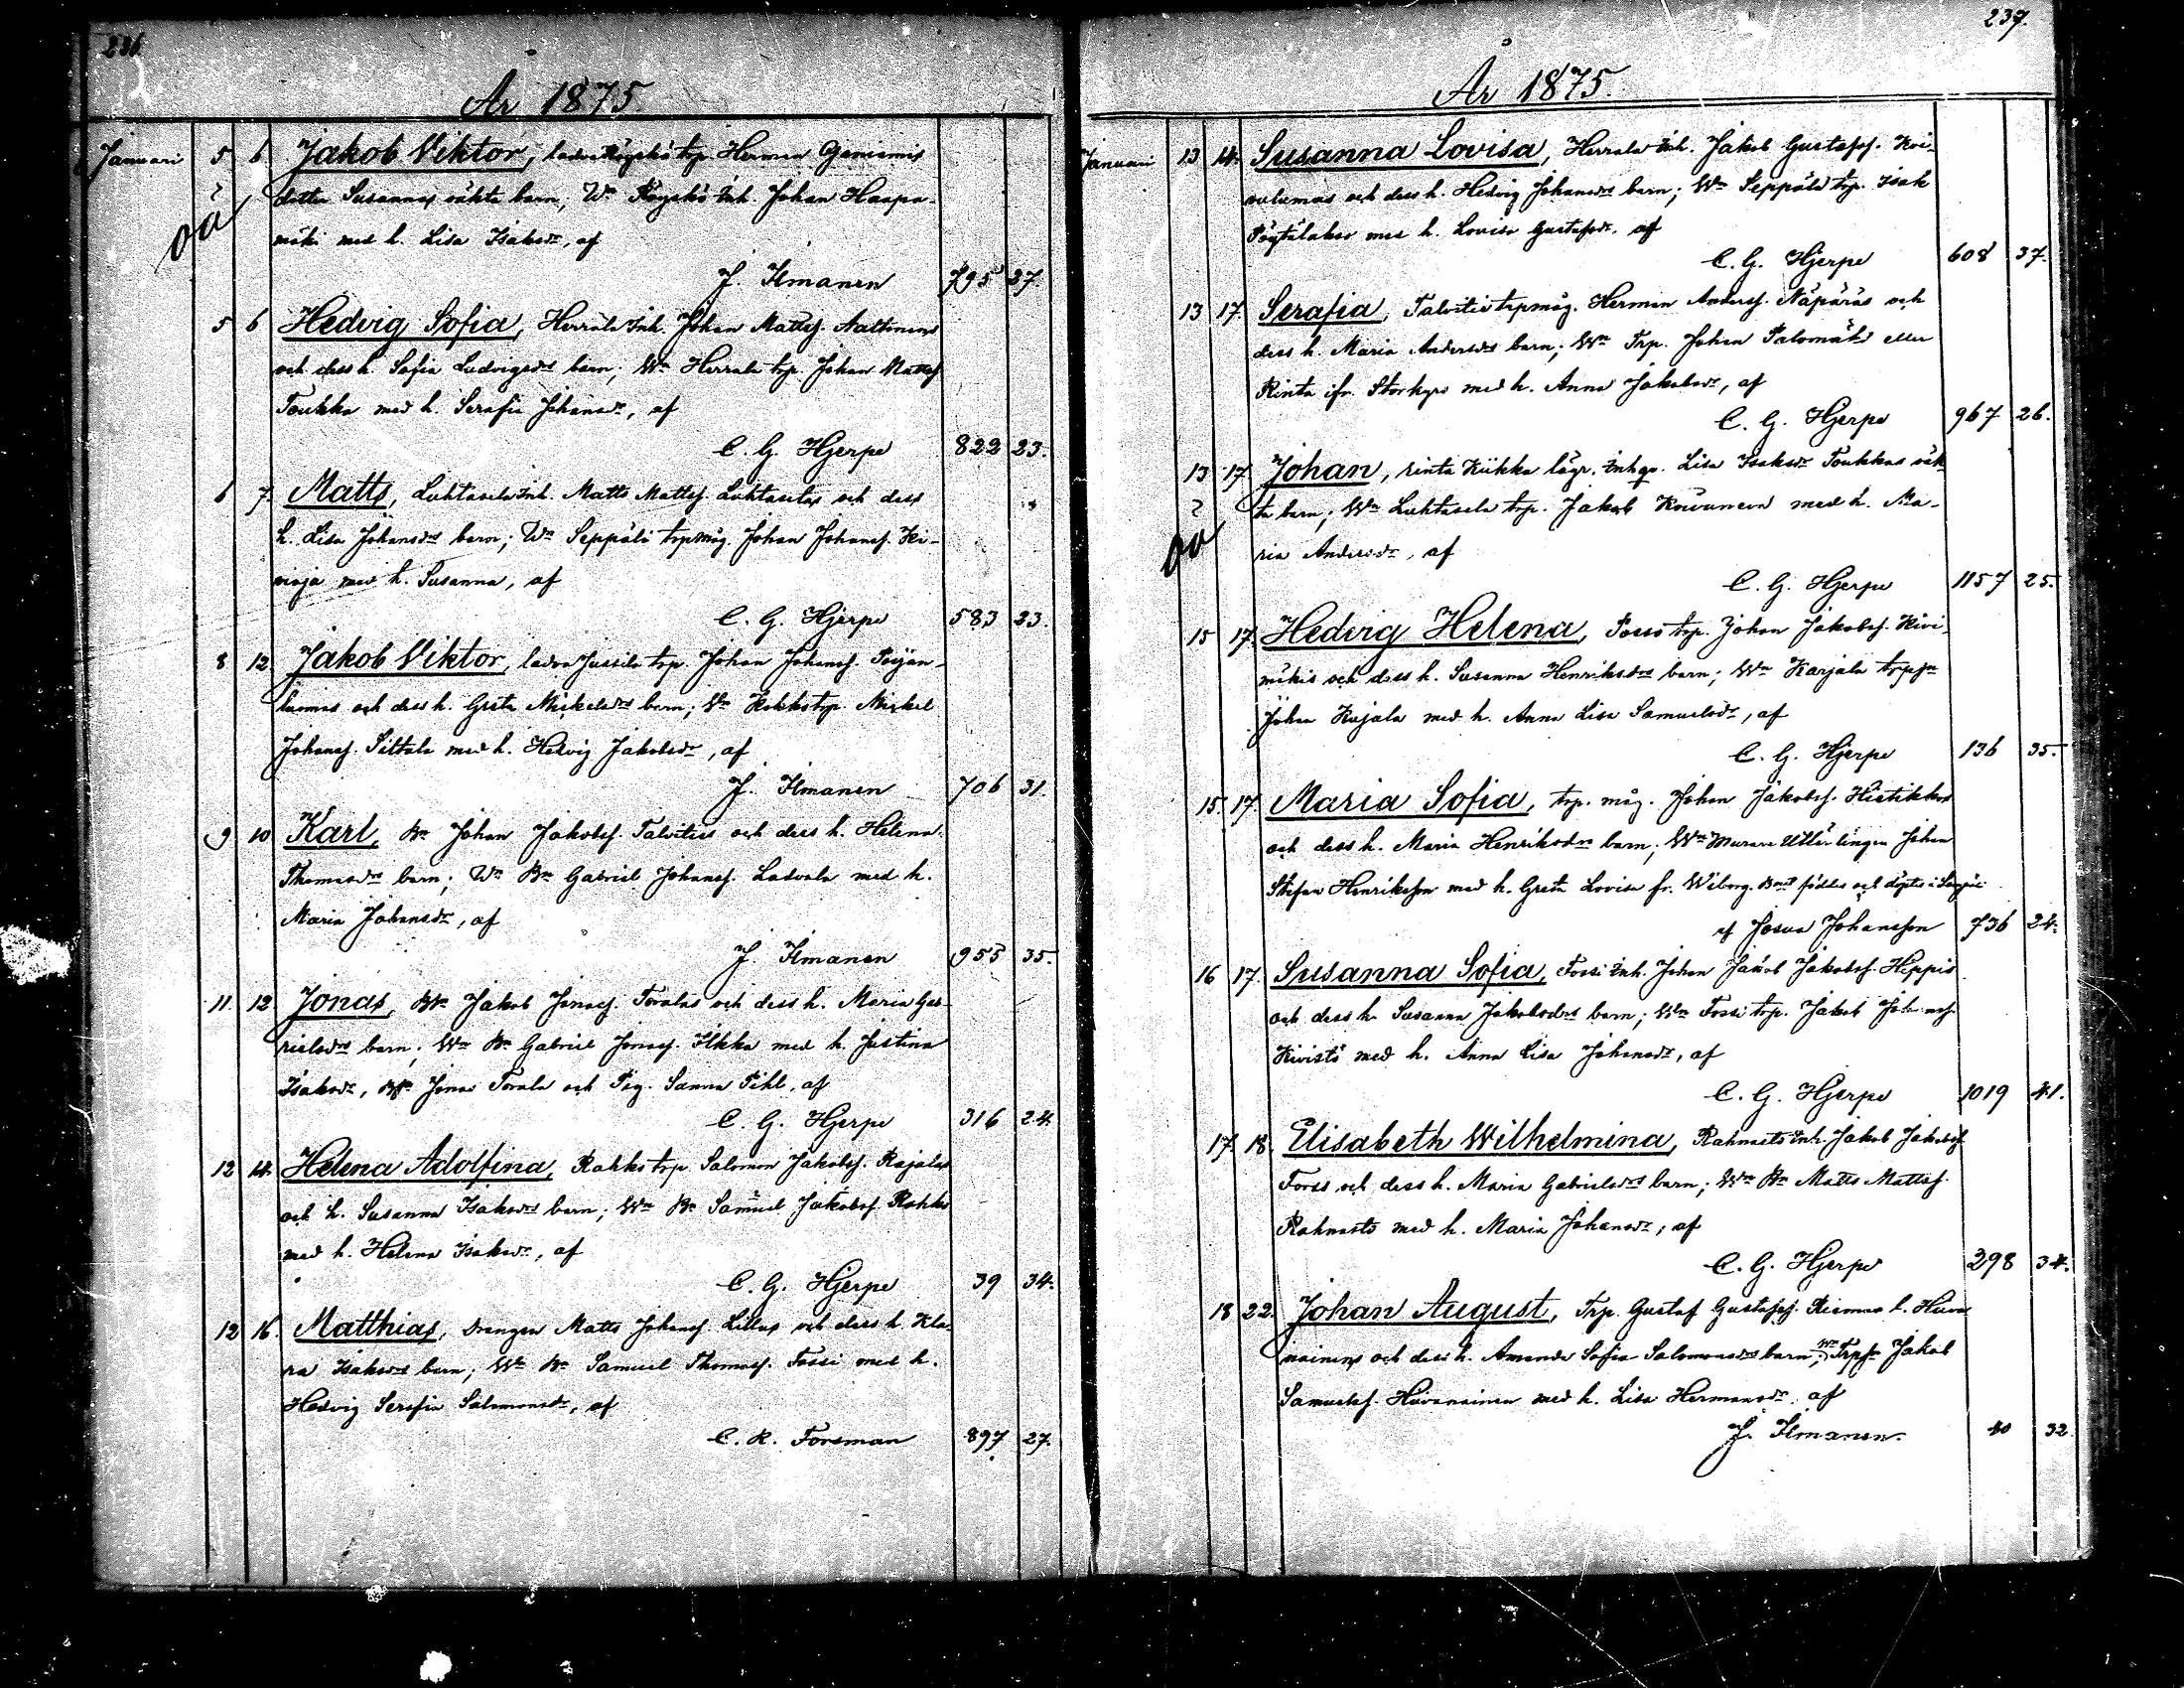 236
År 1875
Januari 5 6 Jakob Viktor, trp. Herman
oä dotter Susannas oäkta barn; Wn Inh. Johan Haapa-
mäki med h. Lisa Isaksdr, af
J. Ilmanen 795 27.
5 6 Hedvig Sofia, Herrala Inh. Johan Mattsf. Aaltonens
och dess h. Sofia Ludvigsdrs barn; Wn Herrala trp. Johan Mattsf
Toukka med h. Serafia Johansdr, af
C. G. Hjerpe 822 23.
6 7. Matts, Luhtasela Inh. Matts Mattsf. Luhtaselas och dess
h. Lisa Johansdrs barn; Wn Seppälä trpmåg. Johan Johansf. Ki-
vioja med h. Susanna, af
C. G. Hjerpe 583 23.
8 12. Jakob Viktor, Jussila trp. Johan Johansf.
och dess h. Greta Mickelsdrs barn; Wn trp. Mickel
Johansf. Siltala med h. Hedvig Jakobsdr, af
J. Ilmanen 706 31.
9 10 Karl, Bn Johan Jakobsf. Talvities och dess h. Helena
Thomasdrs barn; Wn Bn Gabriel Johansf. Ladvala med h.
Maria Johansdr, af
J. Ilmanen 955 35.
11. 12. Jonas, Bn Jakob Jonasf. Toralas och dess h. Maria Gab-
rielsdrs barn; Wn Bn Gabriel Jonasf. Ilkka med h. Justina
Isaksdr, Bn Jonas Torala och Pig. Sanna Pihl, af
C. G. Hjerpe 316 24.
12 14. Helena Adolfina, Rahko trp. Salomon Jakobsf. Rajalas
och h. Susanna Isaksdrs barn; Wn Bn Samuel Jakobsf. Rahko
med h. Helena Isaksdr, af
C. G. Hjerpe 39 34.
12 16. Matthias, Drängen Matts Johansf. Lillus och dess h. Kla-
ra Isaksdrs barn; Wn Bn Samuel Thomasf. Fossi med h.
Hedvig Serafia Salomonsdr, af
C. R. Forsman 897 27.
237.
År 1875.
Januari 13 14. Susanna Lovisa, Herrala Inh. Jakob Gustafsf. Koi-
och dess h. Hedvig Johansdrs barn; Wn Seppälä trp. Isak
med h. Lovisa Gustafsdr, af
C. G. Hjerpe 608 37.
13 17. Serafia, Talvitie trpmåg. Herman Andersf. Näpäräs och
dess h. Maria Andersdrs barn; Wn Trp. Johan Palomäki eller
Rinta ifr. Storkyro med h. Anna Jakobsdr, af
C. G. Hjerpe 967 26.
13 17. Johan, rinta Kiikka lägr. Inhqv. Lisa Isaksdr Toukkas oäk
ta barn; Wn Luhtasela trp. Jakob Koivuneva med h. Ma-
oä ria Andersdr, af
C. G. Hjerpe 1157 25.
15 17. Hedvig Helena, trp. Johan Jakobsf. Kivi-
mäkis och dess h. Susanna Henriksdrs barn; Wn Karjala
Johan Kujala med h. Anna Lisa Samuelsdr, af
C. G. Hjerpe 136 35.
15. 17. Maria Sofia, trp. måg. Johan Jakobsf. Hietikkos
och dess h. Maria Henriksdrs barn; Wn Murare Utlärlingen Johan
Stefan Henriksson med h. Greta Lovisa fr. Wiborg. Barnet föddes och döptes i
af Josua Johansson 736 24.
16 17. Susanna Sofia, Fossi Inh. Johan Jakob Jakobsf. Heppis
och dess h. Susanna Jakobsdrs barn; Wn Fossi trp. Jakob Johansf.
Kivistö med h. Anna Lisa Johansdr, af
C. G. Hjerpe 1019 41.
17. 18. Elisabeth Wilhelmina, Rahnasto Inh. Jakob Jakobsf
Forss och dess h. Maria Gabrielsdrs barn; Wn Bn Matts Mattsf.
Rahnasto med h. Maria Johansdr, af
C. G. Hjerpe 298 34.
18 22. Johan August, Trp. Gustaf Gustafsf. l. Huva
nainens och dess h. Amanda Sofia Salomonsdrs barn; Wn Trp Jakob
Samuelsf. Huvanainen med h. Lisa Hermansdr. af
J. Ilmanen. 40 32.